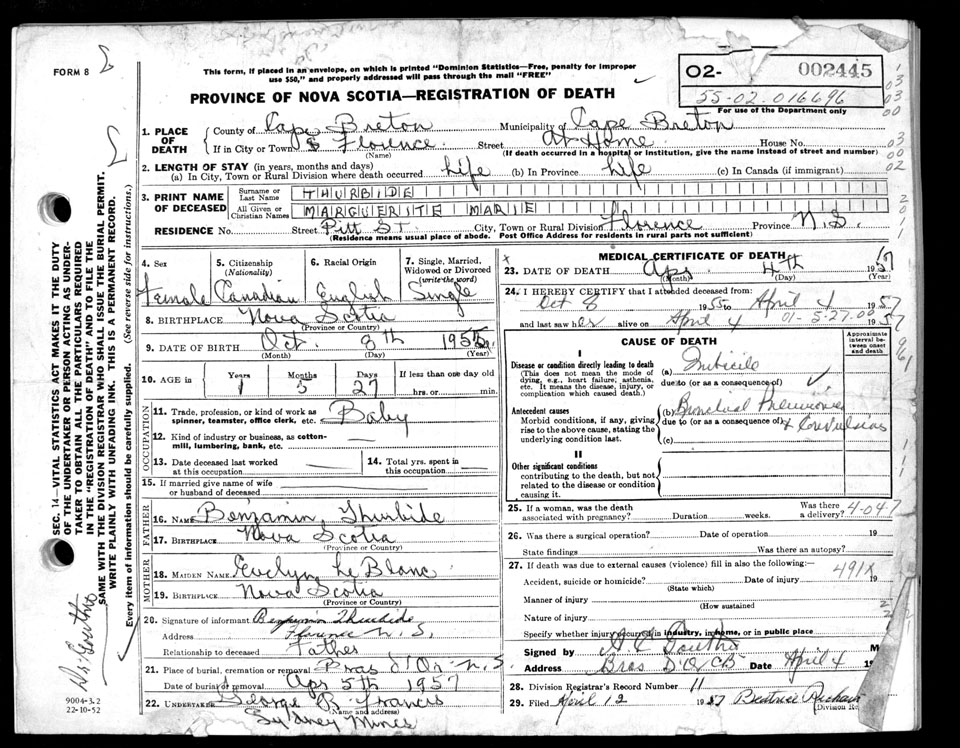 FORM 8
This form, if placed in an envelope, on which is printed "Dominion Statistics—Free, penalty for improper
use $50," and properly addressed will pass through the mail "FREE"
PROVINCE OF NOVA SCOTIA—REGISTRATION OF DEATH
02- 002445
55-02 016696
For use of the Department only
1. PLACE OF DEATH
County of Cape Breton Municipality of Cape Breton
If in City or Town Florence Street At Home House No.
(Name) (If death occurred in a hospital or institution, give the name instead of street and number)
2. LENGTH OF STAY (in years, months and days)
(a) In City, Town or Rural Division where death occurred Life (b) In Province Life (c) In Canada (if immigrant)
3. PRINT NAME OF DECEASED
Surname or Last Name THURBIDE
All Given or Christian Names MARGUERITE MARIE
RESIDENCE No. Street Pitt St. City, Town or Rural Division Florence Province N.S.
(Residence means usual place of abode. Post Office Address for residents in rural parts not sufficient)
4. Sex Female
5. Citizenship (Nationality) Canadian
6. Racial Origin English
7. Single, Married, Widowed or Divorced (write the word) Single
8. BIRTHPLACE Nova Scotia
(Province or Country)
9. DATE OF BIRTH Oct. 8th 1955
(Month) (Day) (Year)
10. AGE in Years 1 Months 5 Days 27 If less than one day old
hrs. or min.
OCCUPATION
11. Trade, profession, or kind of work as
spinner, teamster, office clerk, etc. Baby
12. Kind of industry or business, as cotton-
mill, lumbering, bank, etc.
13. Date deceased last worked
at this occupation
14. Total yrs. spent in
this occupation
15. If married give name of wife
or husband of deceased
FATHER
16. NAME Benjamin Thurbide
17. BIRTHPLACE Nova Scotia
(Province or Country)
MOTHER
18. MAIDEN NAME Evelyn Le Blanc
19. BIRTHPLACE Nova Scotia
(Province or Country)
20. Signature of informant Benjamin Thurbide
Address Florence N.S.
Relationship to deceased Father
21. Place of burial, cremation or removal Bras d'Or N.S.
Date of burial or removal Apr 5th 1957
22. UNDERTAKER George B. Francis
(Name and address)
Sydney Mines
MEDICAL CERTIFICATE OF DEATH
23. DATE OF DEATH Apr. 4th 1957
(Month) (Day) (Year)
24. I HEREBY CERTIFY that I attended deceased from:
Oct 8 1955 to April 4 1957
and last saw her alive on April 4 1957
01-5-27.00
CAUSE OF DEATH
Approximate interval between onset and death
I
Disease or condition directly leading to death
(This does not mean the mode of
dying, e.g., heart failure, asthenia,
etc. It means the disease, injury, or
complication which caused death.)
(a) Imbicile
due to (or as a consequence of)
Antecedent causes
Morbid conditions, if any, giving
rise to the above cause, stating the
underlying condition last.
(b) Bronchial Pneumonia
due to (or as a consequence of) & Convulsions
(c)
II
Other significant conditions
contributing to the death, but not
related to the disease or condition
causing it.
25. If a woman, was the death
associated with pregnancy? Duration weeks. Was there a delivery? 4-04-7
26. Was there a surgical operation? Date of operation 19
State findings Was there an autopsy?
27. If death was due to external causes (violence) fill in also the following:—
Accident, suicide or homicide? Date of injury 19
(State which)
491X
Manner of injury
How sustained
Nature of injury
Specify whether injury occurred in industry, in home, or in public place
Signed by
Address Bras D'Or CB Date April 4 19
28. Division Registrar's Record Number 11
29. Filed April 12 1957 Beatrice
(Division Re
SEC. 14—VITAL STATISTICS ACT MAKES IT THE DUTY
OF THE UNDERTAKER OR PERSON ACTING AS UNDER-
TAKER TO OBTAIN ALL THE PARTICULARS REQUIRED
IN THE "REGISTRATION OF DEATH" AND TO FILE THE
SAME WITH THE DIVISION REGISTRAR WHO SHALL ISSUE THE BURIAL PERMIT.
WRITE PLAINLY WITH UNFADING INK. THIS IS A PERMANENT RECORD.
Every item of information should be carefully supplied. (See reverse side for instructions.)
9004-3.2
22-10-52